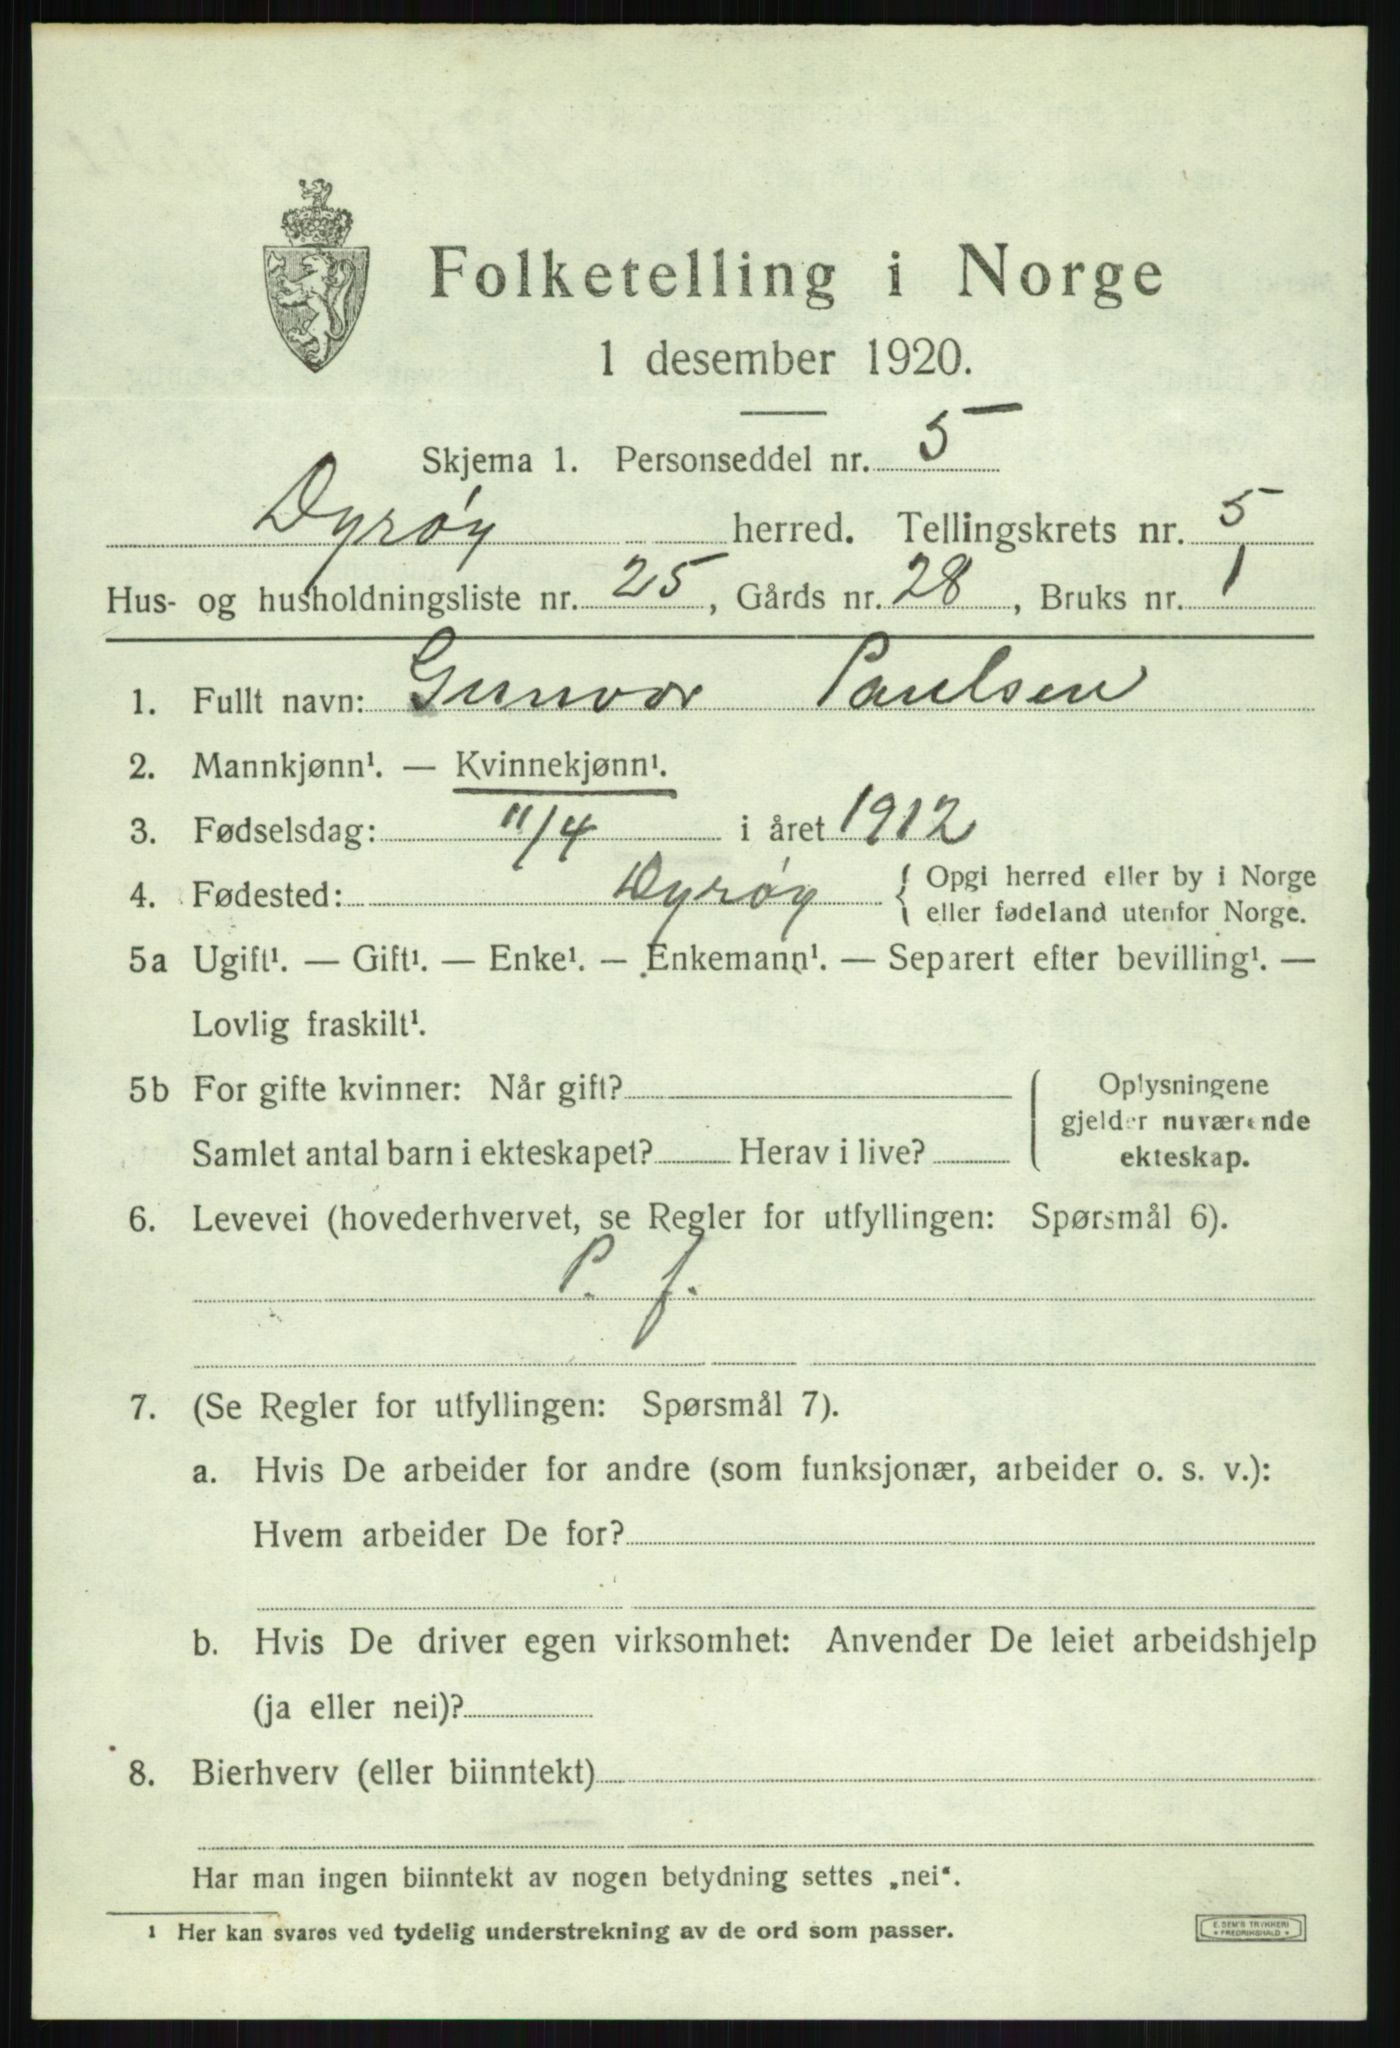 Folketelling i Norge
1 desember 1920.
Skjema 1. Personseddel nr. 5
Dyrøy herred. Tellingskrets nr. 5
Hus- og husholdningsliste nr. 25, Gårds nr. 28, Bruks nr. 1
1. Fullt navn: Gunvor Paulsen
2. Mannkjønn¹. — Kvinnekjønn¹.
3. Fødselsdag: 11/4 i året 1912
4. Fødested: Dyrøy { Opgi herred eller by i Norge
eller fødeland utenfor Norge.
5a Ugift¹. — Gift¹. — Enke¹. — Enkemann¹. — Separert efter bevilling¹. —
Lovlig fraskilt¹.
5b For gifte kvinner: Når gift?
Samlet antal barn i ekteskapet? Herav i live?
Oplysningene
gjelder nuværende
ekteskap.
6. Levevei (hovederhvervet, se Regler for utfyllingen: Spørsmål 6).
P. f.
7. (Se Regler for utfyllingen: Spørsmål 7).
a. Hvis De arbeider for andre (som funksjonær, arbeider o. s. v.):
Hvem arbeider De for?
b. Hvis De driver egen virksomhet: Anvender De leiet arbeidshjelp
(ja eller nei)?
8. Bierhverv (eller biinntekt)
Har man ingen biinntekt av nogen betydning settes „nei“.
¹ Her kan svares ved tydelig understrekning av de ord som passer.
E. SEM'S TRYKKERI
* FREDRIKSHALD *